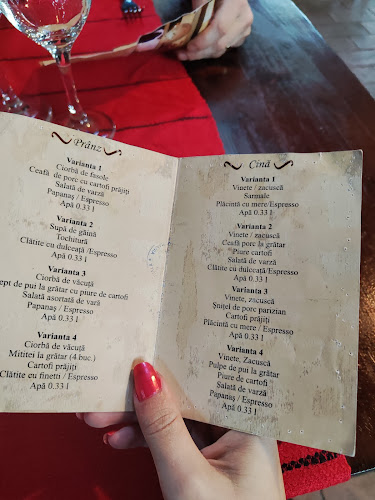 Prânz
Varianta 1
Ciorbă de fasole
Ceafă de porc cu cartofi prăjiți
Salată de varză
Papanaș / Espresso
Apă 0.33 l
Varianta 2
Supă de găină
Tochitură
Clătite cu dulceață/Espresso
Apă 0.33 l
Varianta 3
Ciorbă de văcuță
ept de pui la grătar cu piure de cartofi
Salată asortată de vară
Papanaș / Espresso
Apă 0.33 l
Varianta 4
Ciorbă de văcuță
Mititei la grătar (4 buc.)
Cartofi prăjiți
Clătite cu finetti / Espresso
Apă 0.33 l
Cină
Varianta 1
Vinete / zacuscă
Sarmale
Plăcintă cu mere/Espresso
Apă 0.33 l
Varianta 2
Vinete / zacuscă
Ceafă porc la grătar
Piure cartofi
Salată de varză
Clătite cu dulceață/Espresso
Apă 0.33 l
Varianta 3
Vinete, zacuscă
Șnițel de porc panzian
Cartofi prăjiți
Plăcintă cu mere / Espresso
Apă 0.33 l
Varianta 4
Vinete, Zacuscă
Pulpe de pui la grătar
Piure de cartofi
Salată de varză
Papanaș / Espresso
Apă 0.33 l